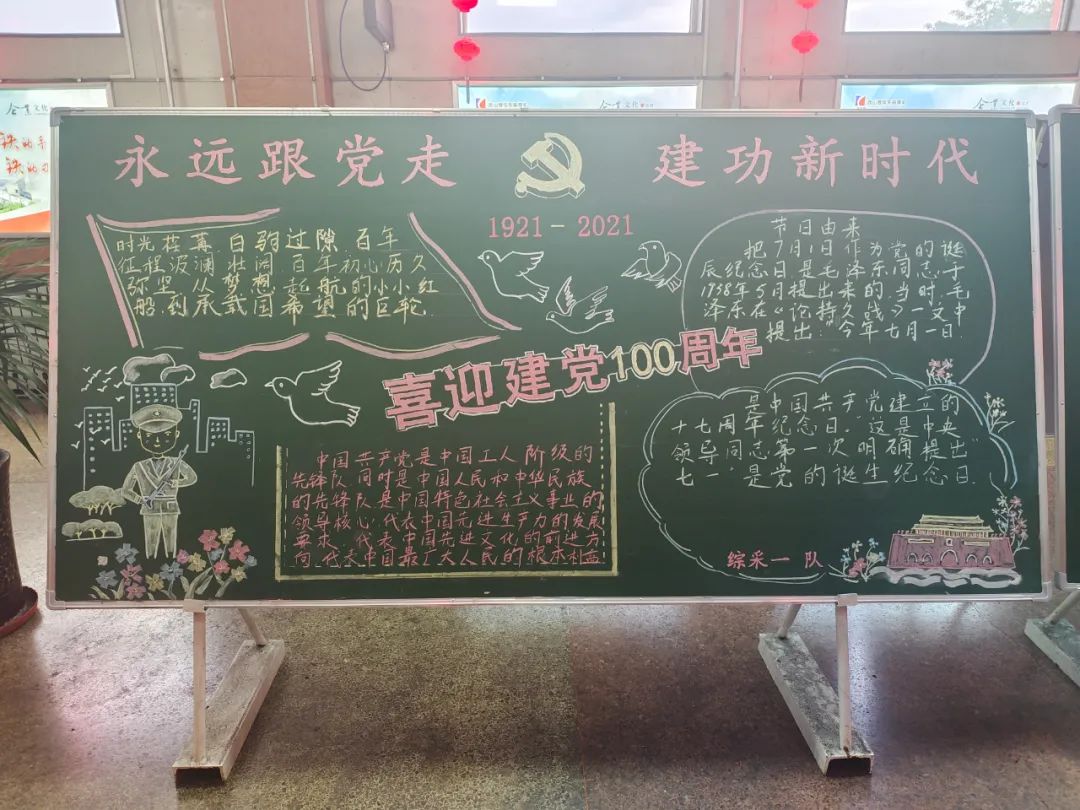 永远跟党走
建功新时代
1921-2021
时光荏苒 白驹过隙 百年
征程波澜壮阔,百年初心历久
弥坚 从梦想起航的小小红
船,到承载国希望的巨轮
节日由来
把7月1日作为党的诞
辰纪念日是毛泽东同志于
1938年5月提出来的,当时,毛
泽东在《论持久战》一文中
提出:"今年七月一日
喜迎建党100周年
是中国共产党建立的
十七周年纪念日。这是中央
领导同志第一次明确提出"
七一"是党的诞生纪念日
中国共产党是中国工人阶级的
先锋队,同时是中国人民和中华民族
的先锋队,是中国特色社会主义事业的
领导核心,代表中国先进生产力的发展
要求,代表中国先进文化的前进方
向,代表中国最广大人民的根本利益
综采一队
企业文化
企业文化
企业文化